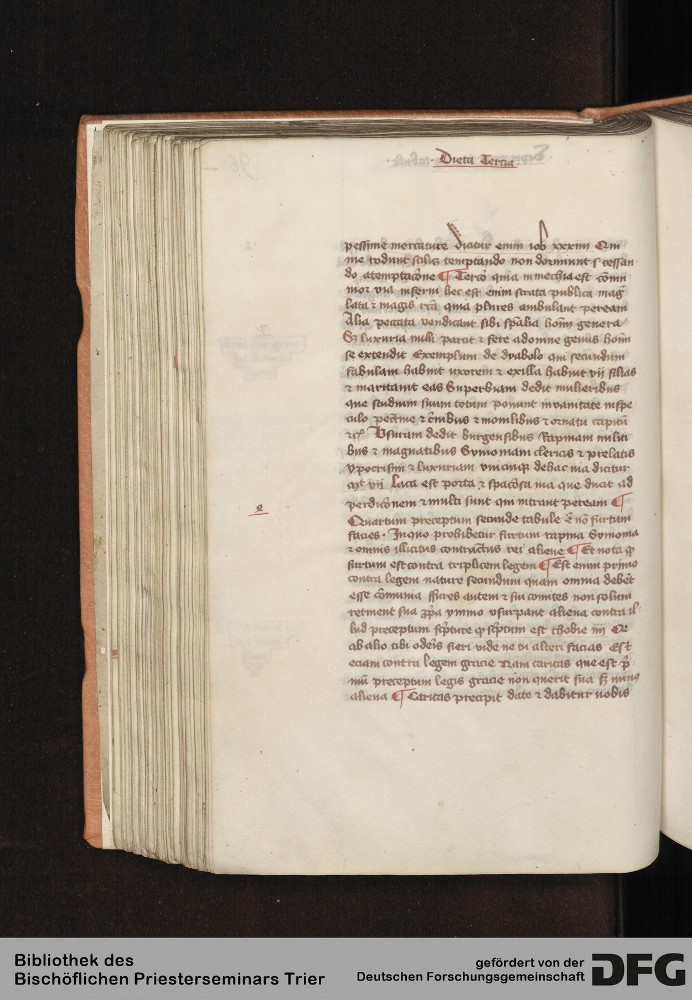 Dieta Tercia
pessime mercature dicitur enim iob xxxiiii Qui
me rodunt scilis temptando non dormiunt s cessan
do atemptacōne ¶ Tercō quia mmechia est cōmu
nior via inferni hec est enim strata publica mag
lata ⁊ magis qnia plures ambulant per eam
Alia peccata vendicant sibi spūalia hoīm genera
Sꝫ luxuria nulli parcit ⁊ fere ad omne genus hoīm
se extendit Exemplum de dyabolo qui secundum
fabulam habuit uxorem ⁊ ex illa habuit vij filias
⁊ maritauit eas Superbiam dedit mulieribus
que studium suum totum ponunt in vanitate in spe
culo pectine ⁊ crinibus ⁊ monilibus ⁊ ornatu capitū
⁊cꝰ Usuram dedit burgensibus Rapinam militi
bus ⁊ magnatibus Symoniam clericis ⁊ prelatis
ypocrisim ⁊ luxuriam de hac via dicitur
vij Lata est porta ⁊ spacōsa via que ducit ad
perdicōnem ⁊ multi sunt qui intrant per eam ¶
e
Quartum preceptum secunde tabule ē nō furtum
facies · In quo prohibetur furtum rapina Symonia
⁊ omnis illicitus contractus rei aliene ¶ Et nota ꝙ
furtum est contra triplicem legem ¶ Est enim primo
contra legem nature secundum quam omnia debēt
esse cōmunia autem ⁊ sui comites non solum
retinent sua ꝓpa ymmo usurpant aliena contra il
lud preceptum scpture ꝙ scptum est thobie iiij
ab alio tibi oderis fieri vide ne tu alteri facias Est
eciam contra legem gracie Nam caritas que est p̄
mū preceptum legis gracie non querit sua sꝫ
aliena ¶ Caritas precipit date ⁊ dabitur vobis
Bibliothek des
Bischöflichen Priesterseminars Trier
gefördert von der
Deutschen Forschungsgemeinschaft
DFG